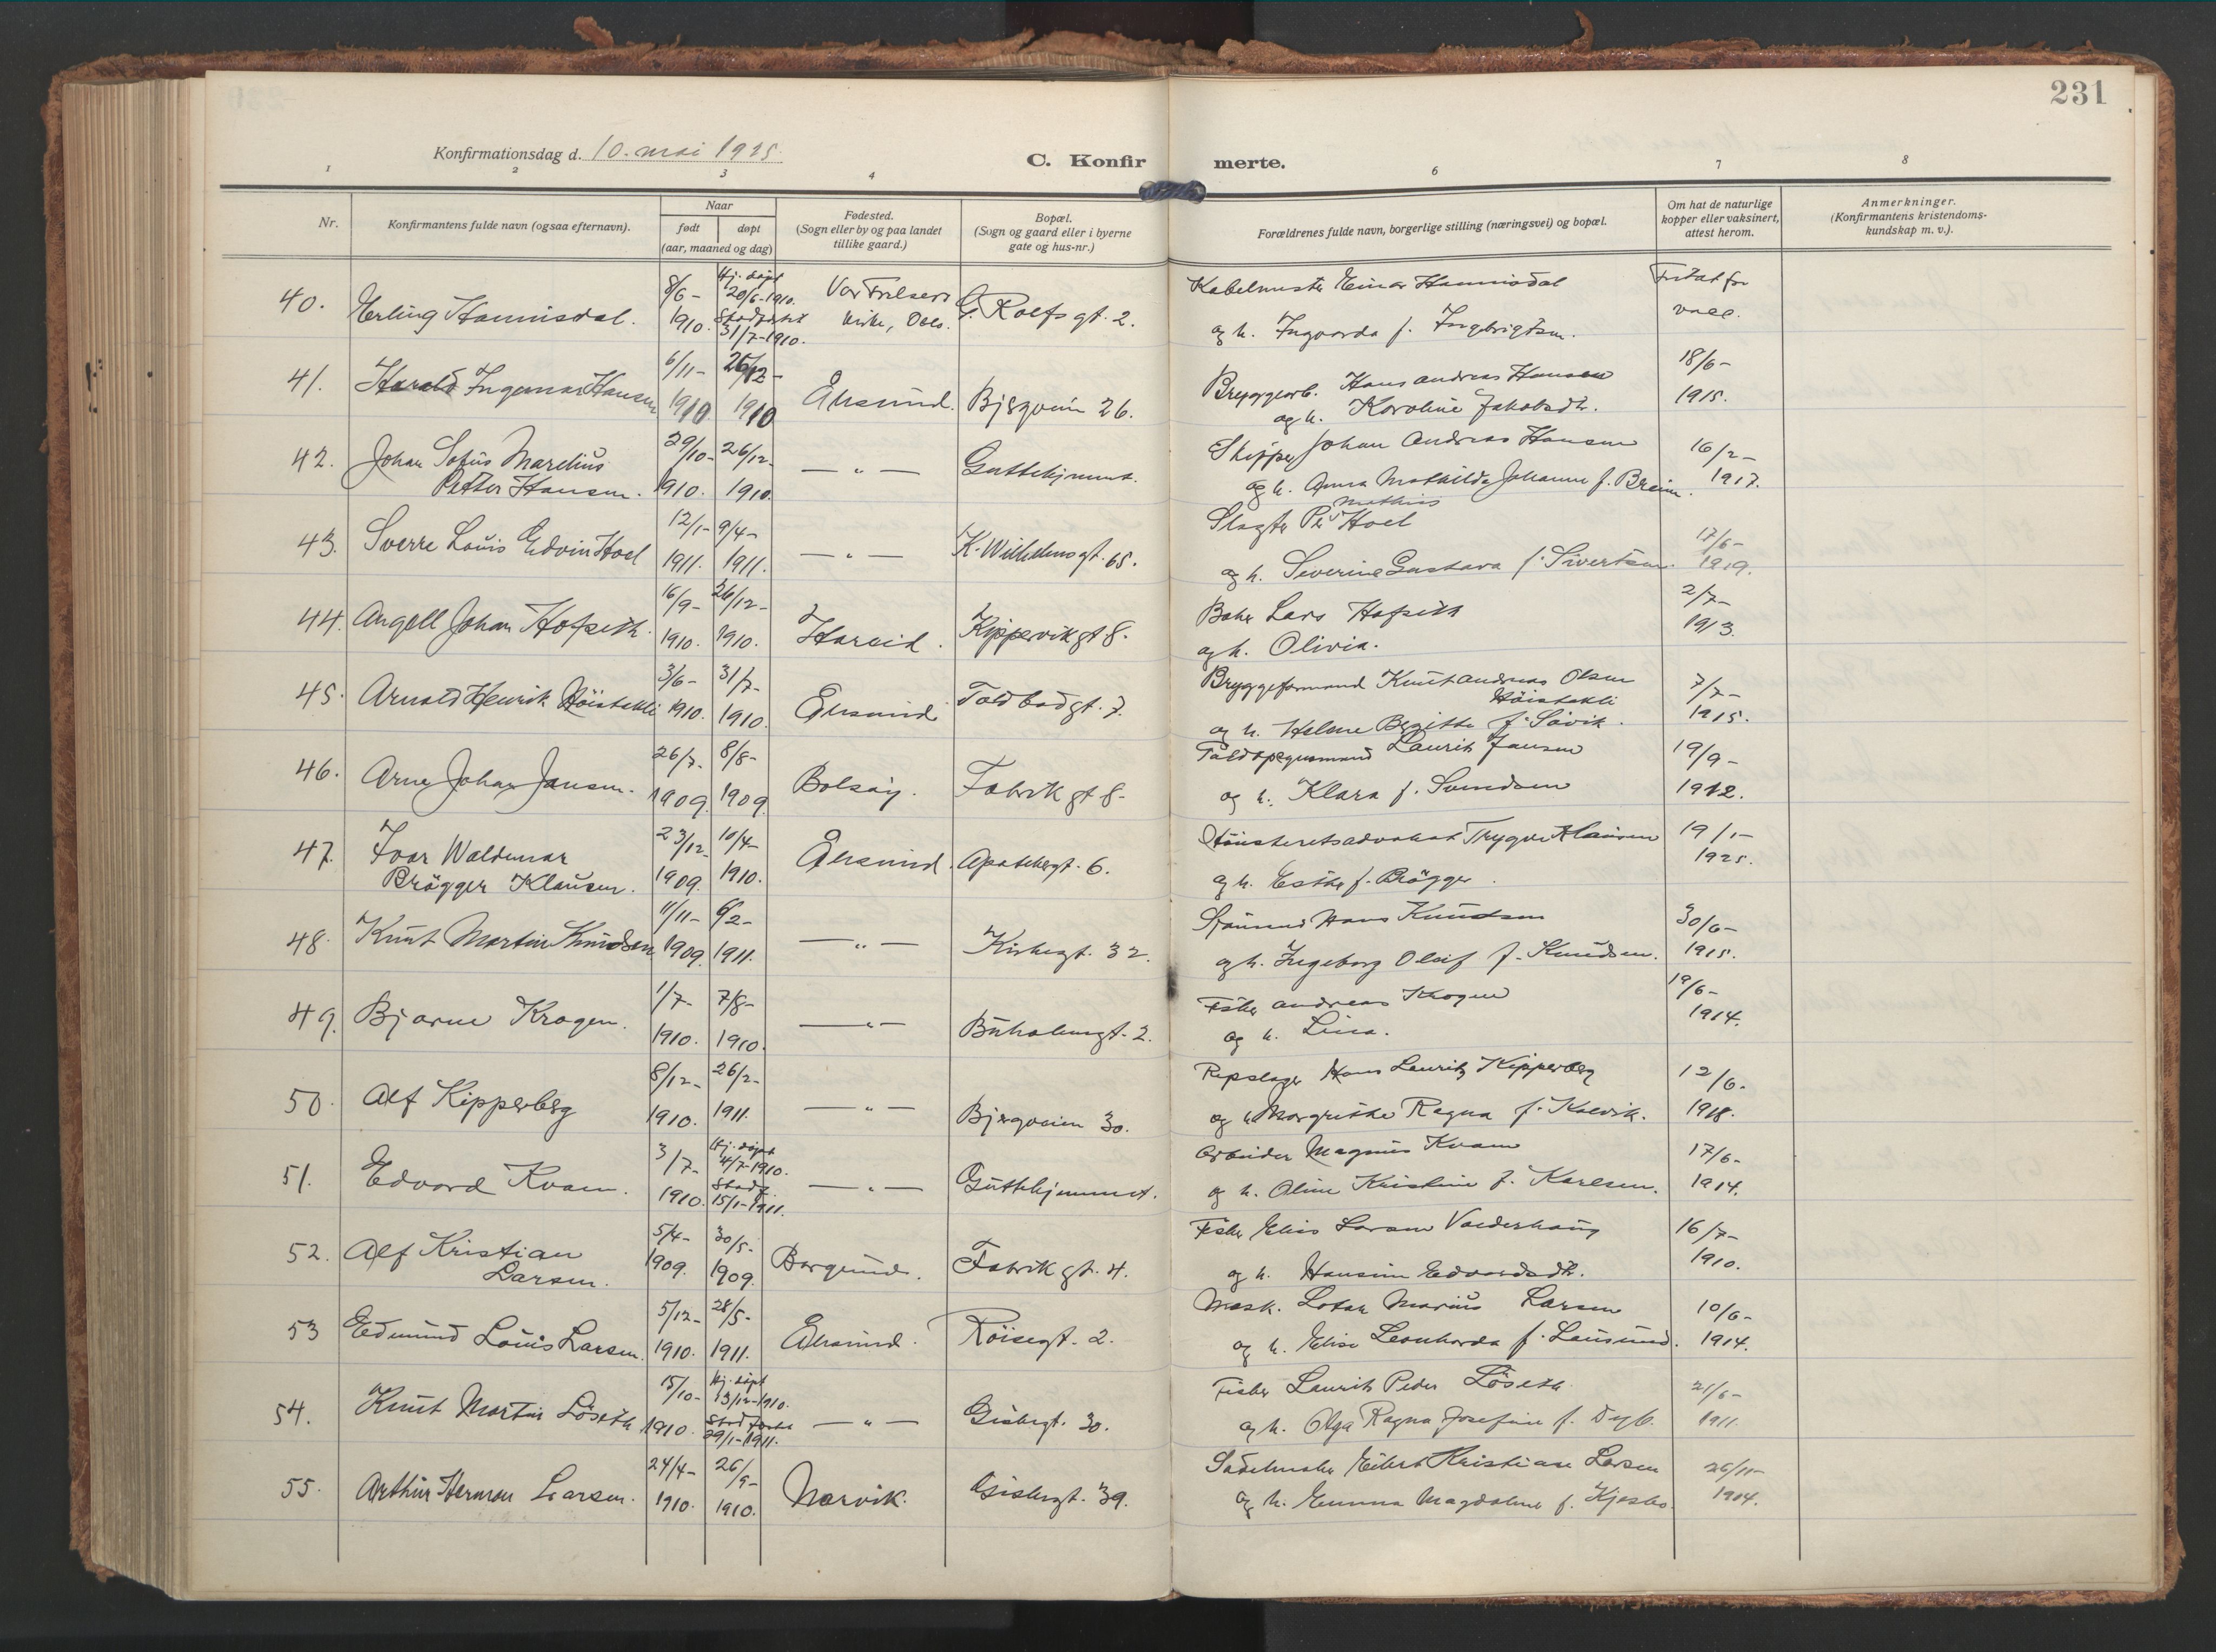 231
Konfirmationsdag d. 10. mai 1925.
C. Konfirmerte.
1 2 3 4 6 7 8
Nr.
Konfirmantens fulde navn (ogsaa efternavn).
Naar
født
døpt
(aar, maaned og dag)
Fødested.
(Sogn eller by og paa landet
tillike gaard.)
Bopæl.
(Sogn og gaard eller i byerne
gate og hus-nr.)
Forældrenes fulde navn, borgerlige stilling (næringsvei) og bopæl.
Om hat de naturlige
kopper eller vaksinert,
attest herom.
Anmerkninger.
(Konfirmantens kristendoms-
kundskap m. v.).
40. Erling Hannisdal. 8/6- 1910. Hj. døpt 20/6-1910. 31/7-1910. Vor Frelsers kirke, Oslo. G. Rolfsgt. 2. Einar Hannisdal
og h. Ingvarda f. Ingebrigtsen.
41. Harald Ingemar Hansen 6/11- 1910 26/12- 1910 Ålesund. Bjørgvein 26. Bryggearb. Hans Andreas Hansen 18/6-
og h. Karoline Jakobsdt. 1915.
42. Johan Sofus Marelius 29/10- 26/12- — " — Guttehjemmet. Skipper Johan Andreas Hansen 16/2-
Petter Hansen. 1910. 1910. og h. Anna Mathilde Johanne f. Breim. 1917.
43. Sverre Louis Edvin Hoel 12/1- 9/4- — " — K. Wilhelmsgt. 65. Slagter Per Mathias Hoel 17/6-
1911. 1911. og h. Severine Gustava f. Sivertsen. 1919.
44. Angell Johan Hofseth. 16/9- 26/12- Hareid. Kippervikgt 8. Baker Lars Hofseth 2/7-
1910. 1910. og h. Olivia. 1913.
45. Arnold Henrik Höistakli 3/6- 31/7- Ålesund Toldbodgt. 7. Bryggeformand Knut Andreas Olsen Höistakli 7/7-
1910. 1910. og h. Helene Bergitte f. Sävik. 1915.
46. Arne Johan Jansen. 26/7- 8/8- Bolsöy. Fabrikgt 8. Laurits Jansen 19/9-
1909. 1909 og h. Klara f. Svendsen 1912.
47. Ivar Waldemar 23/12- 10/4- Ålesund. Apotekergt. 6. Höiesteretsadvokat Trygve Klausen 19/1-
Brögger Klausen. 1909. 1910. og h. Esther f. Brögger. 1925.
48. Knut Martin Knudsen 11/11- 6/2- — " — Kirkegt. 32. Sjömand Hans Knudsen 30/6-
1909. 1911. og h. Ingeborg Oleif f. Knudsen. 1915.
49. Bjarne Krogen. 1/7- 7/8- — " — Buholmgt. 2. Fisker Andreas Krogen 19/6-
1910. 1910. og h. Lina. 1914.
50. Alf Kipperberg 8/12- 26/2- — " — Bjørgveien 30. Repslager Hans Lauritz Kipperberg 12/6-
1910. 1911. og h. Margrethe Ragna f. Kalvik. 1918.
51. Edvard Kvam. 3/7- 1910. Hj. døpt 4/7-1910. Stadf. 15/1-1911. — " — Guttehjemmet. Arbeider Magnus Kvam 17/6-
og h. Oline Kristine f. Karlsen. 1914.
52. Alf Kristian 5/4- 30/5- Borgund. Fabrikgt. 4. Fisker Elias Larsen Valderhaug 16/7-
Larsen. 1909. 1909. og h. Hansine Edvardsdt. 1910.
53 Edmund Louis Larsen. 5/12- 28/5- Ålesund. Röisegt. 2. Mask. Lotar Marius Larsen 10/6-
1910. 1911. og h. Elise Leonharda f. Lausund. 1914.
54. Knut Martin Löseth 15/10- 1910. Hj. døpt 13/12-1910. 29/1-1911. — " — Giskegt. 30. Fisker Laurits Peder Löseth 21/6-
og h. Olga Ragna Josefine f. Dyb. 1911.
55. Arthur Herman Larsen. 24/4- 26/9- Narvik. Giskegt. 39. Eilert Kristian Larsen 26/11-
1910. 1910. og h. Emma Magdalene f. Kjesbo. 1914.